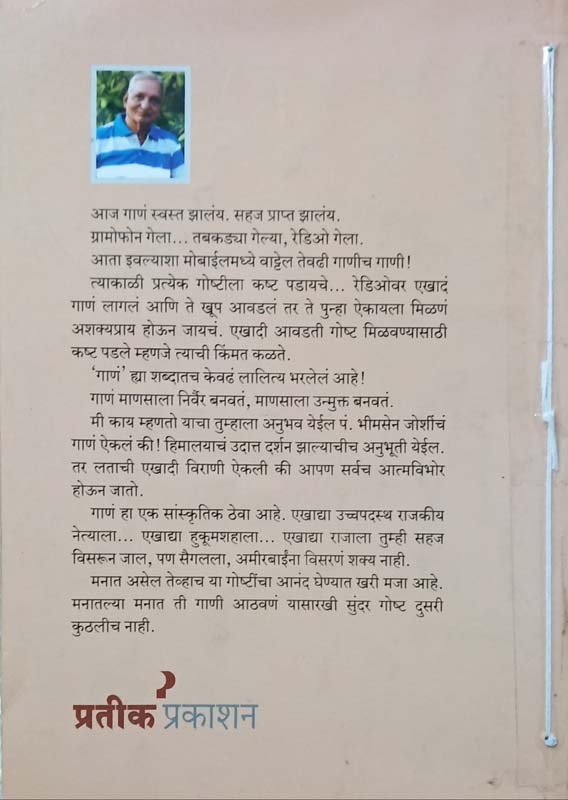 आज गाणं स्वस्त झालंय. सहज प्राप्त झालंय.
ग्रामोफोन गेला... तबकड्या गेल्या, रेडिओ गेला.
आता इवल्याशा मोबाईलमध्ये वाट्टेल तेवढी गाणीच गाणी!
त्याकाळी प्रत्येक गोष्टीला कष्ट पडायचे... रेडिओवर एखादं
गाणं लागलं आणि ते खूप आवडलं तर ते पुन्हा ऐकायला मिळणं
अशक्यप्राय होऊन जायचं. एखादी आवडती गोष्ट मिळवण्यासाठी
कष्ट पडले म्हणजे त्याची किंमत कळते.
'गाणं' ह्या शब्दातच केवढं लालित्य भरलेलं आहे!
गाणं माणसाला निर्वैर बनवतं, माणसाला उन्मुक्त बनवतं.
मी काय म्हणतो याचा तुम्हाला अनुभव येईल पं. भीमसेन जोशींचं
गाणं ऐकलं की! हिमालयाचं उदात्त दर्शन झाल्याचीच अनुभूती येईल.
तर लताची एखादी विराणी ऐकली की आपण सर्वच आत्मविभोर
होऊन जातो.
गाणं हा एक सांस्कृतिक ठेवा आहे. एखाद्या उच्चपदस्थ राजकीय
नेत्याला... एखाद्या हुकूमशहाला... एखाद्या राजाला तुम्ही सहज
विसरून जाल, पण सैगलला, अमीरबाईंना विसरणं शक्य नाही.
मनात असेल तेव्हाच या गोष्टींचा आनंद घेण्यात खरी मजा आहे.
मनातल्या मनात ती गाणी आठवणं यासारखी सुंदर गोष्ट दुसरी
कुठलीच नाही.
प्रतीक प्रकाशन